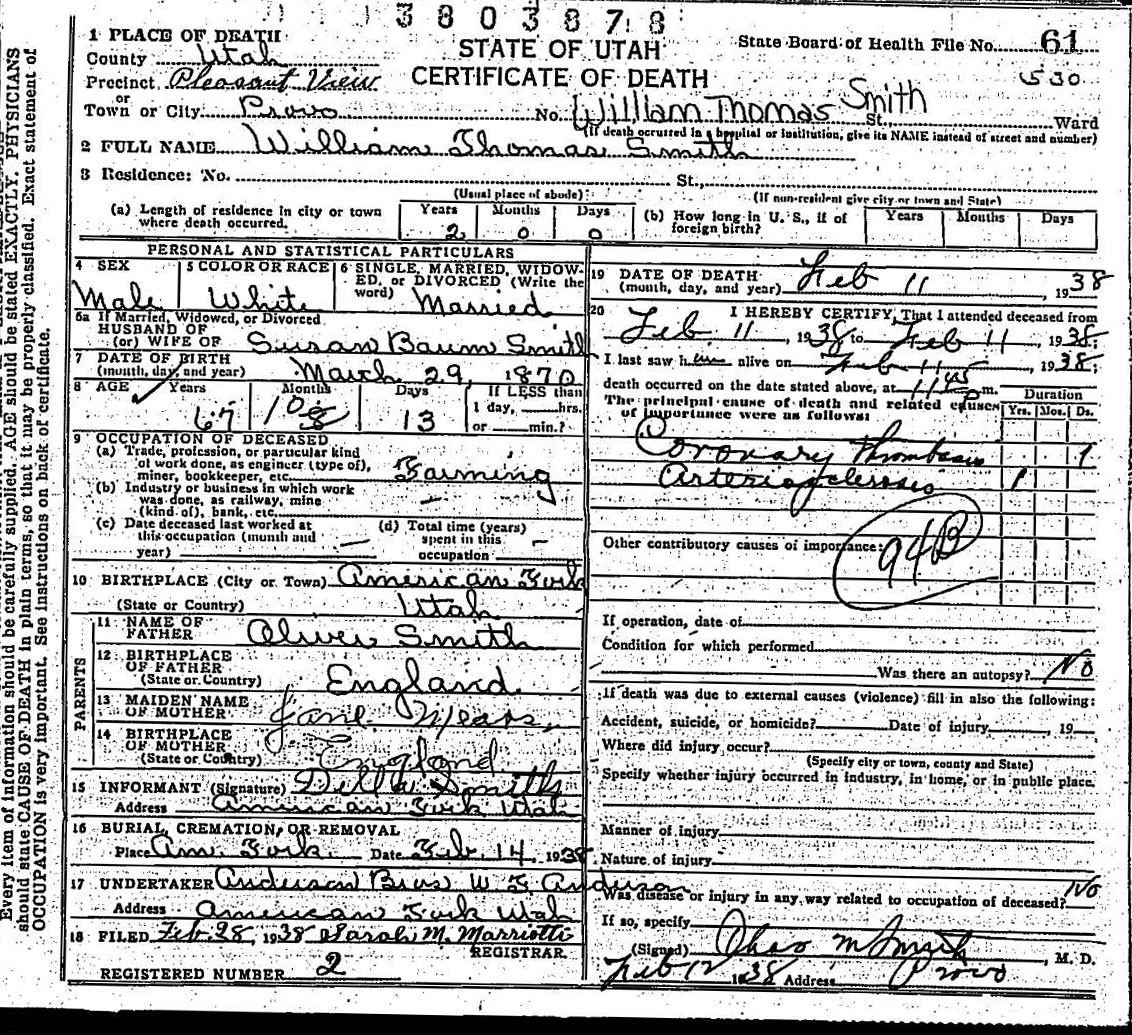 3803878
1 PLACE OF DEATH
STATE OF UTAH
CERTIFICATE OF DEATH
State Board of Health File No. 61
530
County Utah
Precinct Pleasant View
or
Town or City Provo No. William Thomas Smith St., Ward
(If death occurred in a hospital or institution, give its NAME instead of street and number)
2 FULL NAME William Thomas Smith
3 Residence: No. St.,
(Usual place of abode) (If non-resident give city or town and State)
(a) Length of residence in city or town where death occurred. Years 2 Months 0 Days 0
(b) How long in U. S., if of foreign birth? Years Months Days
PERSONAL AND STATISTICAL PARTICULARS
4 SEX Male
5 COLOR OR RACE White
6 SINGLE, MARRIED, WIDOWED, or DIVORCED (Write the word) Married
6a If Married, Widowed, or Divorced
HUSBAND OF
(or) WIFE OF Susan Baum Smith
7 DATE OF BIRTH
(month, day, and year) March 29, 1870
8 AGE Years 67 Months 10 Days 13 If LESS than 1 day, hrs. or min.?
9 OCCUPATION OF DECEASED
(a) Trade, profession, or particular kind of work done, as engineer (type of), miner, bookkeeper, etc. Farming
(b) Industry or business in which work was done, as railway, mine (kind of), bank, etc. —
(c) Date deceased last worked at this occupation (month and year) —
(d) Total time (years) spent in this occupation —
10 BIRTHPLACE (City or Town) American Fork
(State or Country) Utah
PARENTS
11 NAME OF FATHER Oliver Smith
12 BIRTHPLACE OF FATHER
(State or Country) England
13 MAIDEN NAME OF MOTHER Jane Mears
14 BIRTHPLACE OF MOTHER
(State or Country) England
15 INFORMANT (Signature) Della Smith
Address American Fork Utah
16 BURIAL, CREMATION, OR REMOVAL
Place Am. Fork. Date Feb. 14, 1938
17 UNDERTAKER Anderson Bros W. E. Anderson
Address American Fork Utah
18 FILED Feb. 28, 1938 Sarah M. Marriott
REGISTRAR.
REGISTERED NUMBER 2
19 DATE OF DEATH
(month, day, and year) Feb 11, 1938
20 I HEREBY CERTIFY, That I attended deceased from
Feb. 11, 1938 to Feb 11, 1938;
I last saw him alive on Feb 11, 1938;
death occurred on the date stated above, at 11 45 m.
The principal cause of death and related causes of importance were as follows:
Duration
Yrs. Mos. Ds.
Coronary Thrombosis 1
Arteriosclerosis 1
Other contributory causes of importance:
94B
If operation, date of
Condition for which performed
Was there an autopsy? No
If death was due to external causes (violence) fill in also the following:
Accident, suicide, or homicide? Date of injury, 19
Where did injury occur?
(Specify city or town, county and State)
Specify whether injury occurred in industry, in home, or in public place.
Manner of injury
Nature of injury
Was disease or injury in any way related to occupation of deceased? No
If so, specify
(Signed) Chas M Smith, M. D.
Feb 12 1938 Address Provo
Every item of information should be carefully supplied. AGE should be stated EXACTLY. PHYSICIANS
should state CAUSE OF DEATH in plain terms, so that it may be properly classified. Exact statement of
OCCUPATION is very important. See instructions on back of certificate.